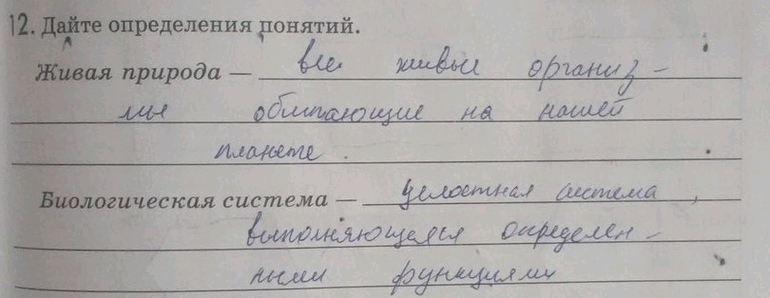 12. Дайте определения понятий.
Живая природа — все живые организ-
мы обитающие на нашей
планете.
Биологическая система — целостная система,
выполняющаяся определен-
ными функциями